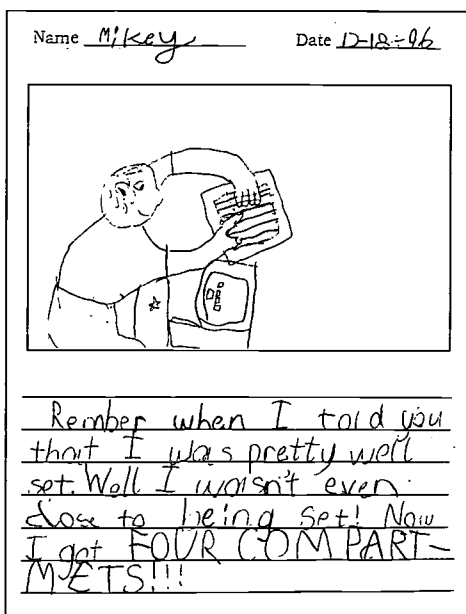 Name Mikey Date 12-18-96
Rember when I told you
that I was pretty well
set. Well I wasn't even
close to being set! Now
I got FOUR COMPART-
METS!!!